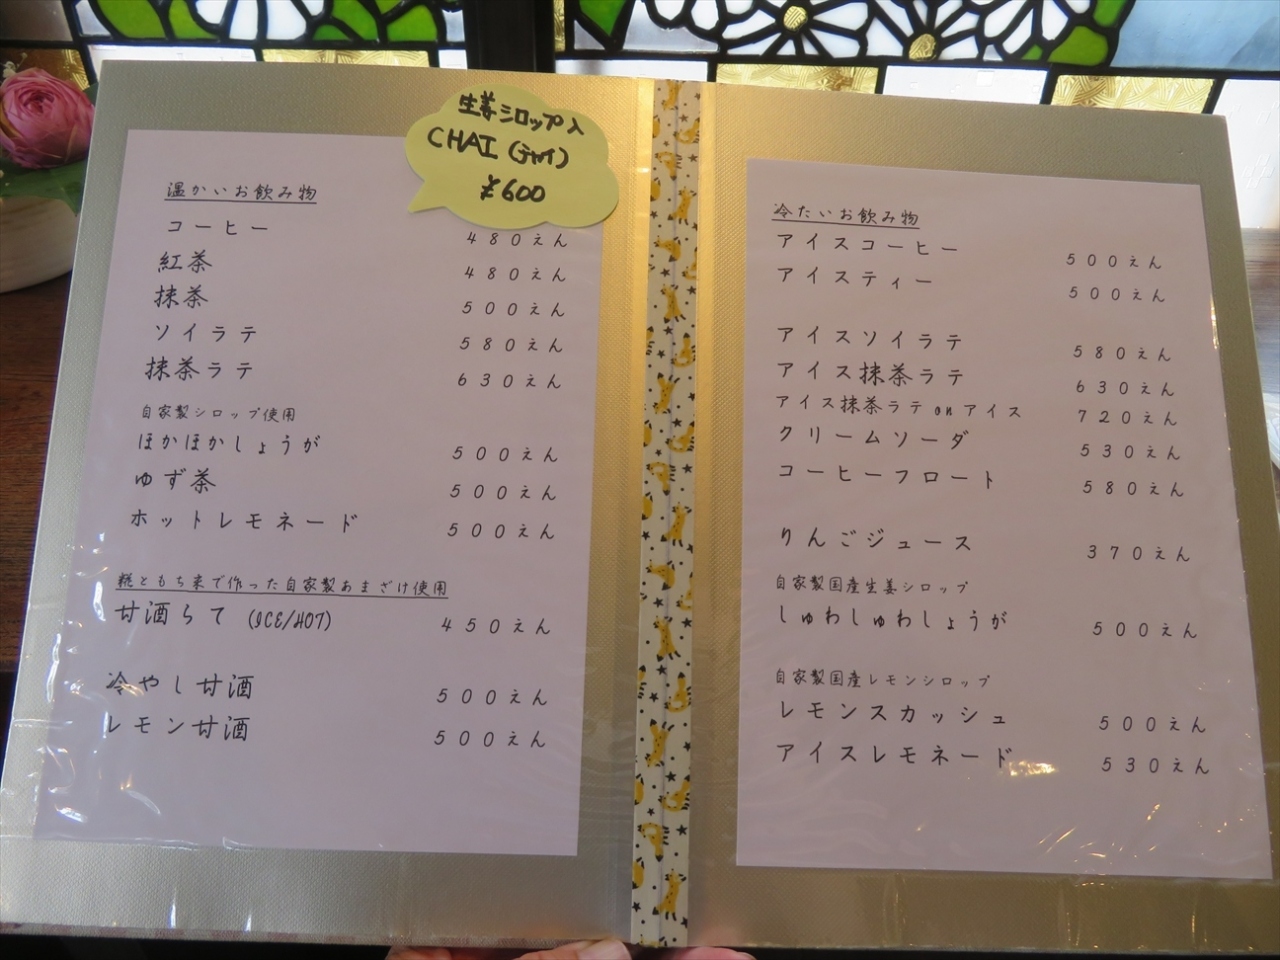 生姜シロップ入
CHAI (チャイ)
¥600
温かいお飲み物
コーヒー 480えん
紅茶 480えん
抹茶 500えん
ソイラテ 580えん
抹茶ラテ 630えん
自家製シロップ使用
ほかほかしょうが 500えん
ゆず茶 500えん
ホットレモネード 500えん
糀ともち米で作った自家製あまざけ使用
甘酒らて (ICE/HOT) 450えん
冷やし甘酒 500えん
レモン甘酒 500えん
冷たいお飲み物
アイスコーヒー 500えん
アイスティー 500えん
アイスソイラテ 580えん
アイス抹茶ラテ 630えん
アイス抹茶ラテonアイス 720えん
クリームソーダ 530えん
コーヒーフロート 580えん
りんごジュース 370えん
自家製国産生姜シロップ
しゅわしゅわしょうが 500えん
自家製国産レモンシロップ
レモンスカッシュ 500えん
アイスレモネード 530えん